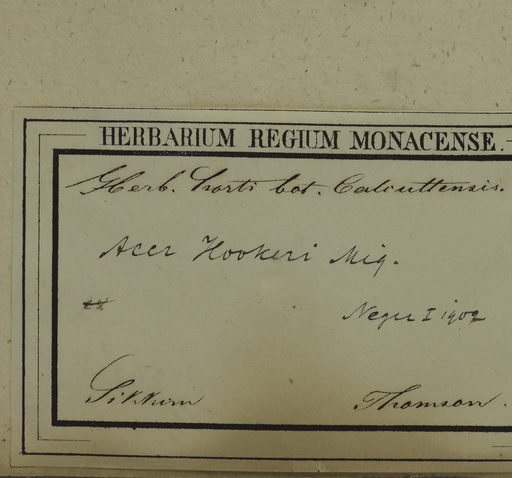 HERBARIUM REGIUM MONACENSE.
Herb. horti bot. Calcuttensis.
Acer Hookeri Miq.
I 1902
Sikkim
Thomson.